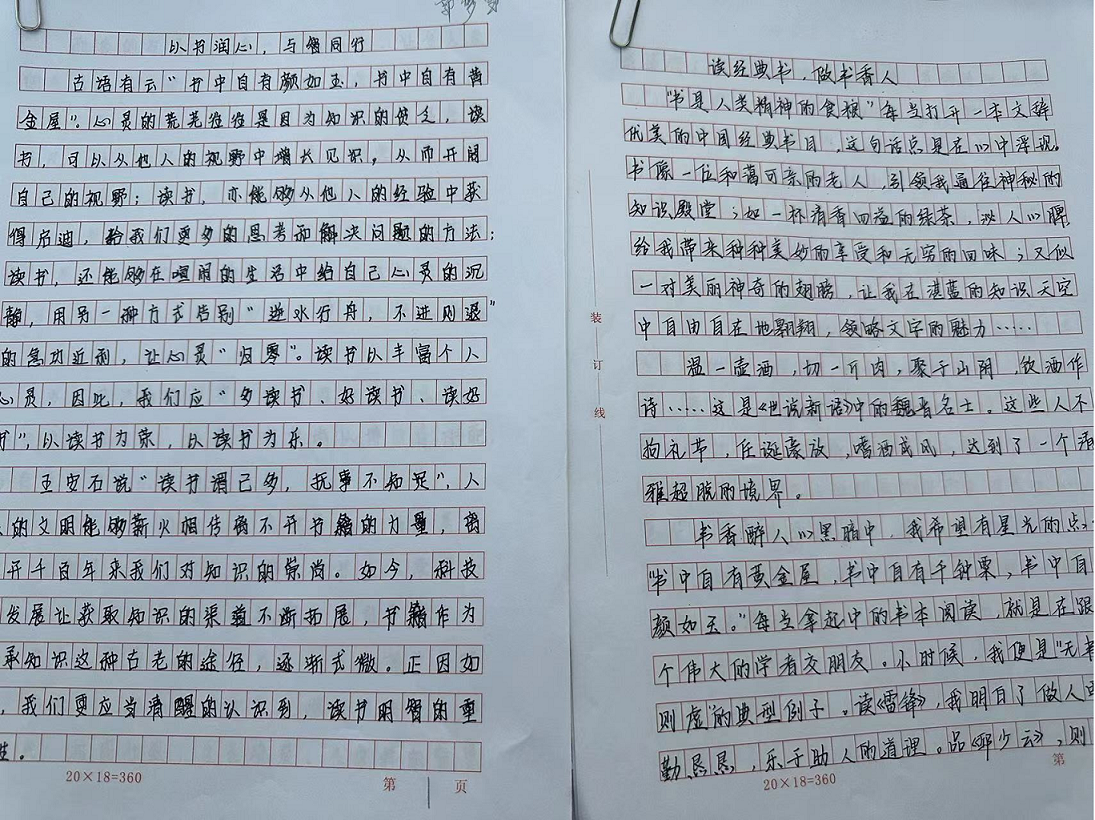 以书润心，与智同行
古语有云“书中自有颜如玉，书中自有黄
金屋”。心灵的荒芜往往是因为知识的贫乏，读
书，可以从他人的视野中增长见识，从而开阔
自己的视野；读书，亦能够从他人的经验中获
得启迪，给我们更多的思考而解决问题的方法；
读书，还能够在喧闹的生活中给自己心灵的沉
静，用另一种方式告别“逆水行舟，不进则退”
的急功近利，让心灵“归零”。读书以丰富个人
心灵，因此，我们应“多读书、好读书、读好
书”，以读书为荣，以读书为乐。
王安石说“读书谓已多，抚事不知足”，人
的文明能够薪火相传离不开书籍的力量，离
开千百年来我们对知识的崇尚。如今，科技
发展让获取知识的渠道不断拓展，书籍作为
承知识这种古老的途径，逐渐式微。正因如
，我们更应当清醒的认识到，读书明智的重
性。
20×18=360
第 页
读经典书，做书香人
“书是人类精神的食粮”每当打开一本文辞
优美的中国经典书目，这句话总是在心中浮现。
书像一位和蔼可亲的老人，引领我通往神秘的
知识殿堂；如一杯清香四溢的绿茶，沁人心脾
给我带来种种美妙的享受和无穷的回味；又似
一对美丽神奇的翅膀，让我在湛蓝的知识天空
中自由自在地翱翔，领略文字的魅力……
温一壶酒，切一斤肉，聚于山阴，饮酒作
诗……这是《世说新语》中的魏晋名士。这些人不
拘礼节，任诞豪放，嗜酒成风，达到了一个清
雅超脱的境界。
书香醉人心黑暗中，我希望有星光的点
“书中自有黄金屋，书中自有千钟粟，书中自
颜如玉。”每当拿起中的书本阅读，就是在跟
个伟大的学者交朋友。小时候，我便是“无书
则虚的典型例子。读《雷锋》，我明白了做人
勤恳恳，乐于助人的道理。品《邱少云》，则
20×18=360
第
装
订
线